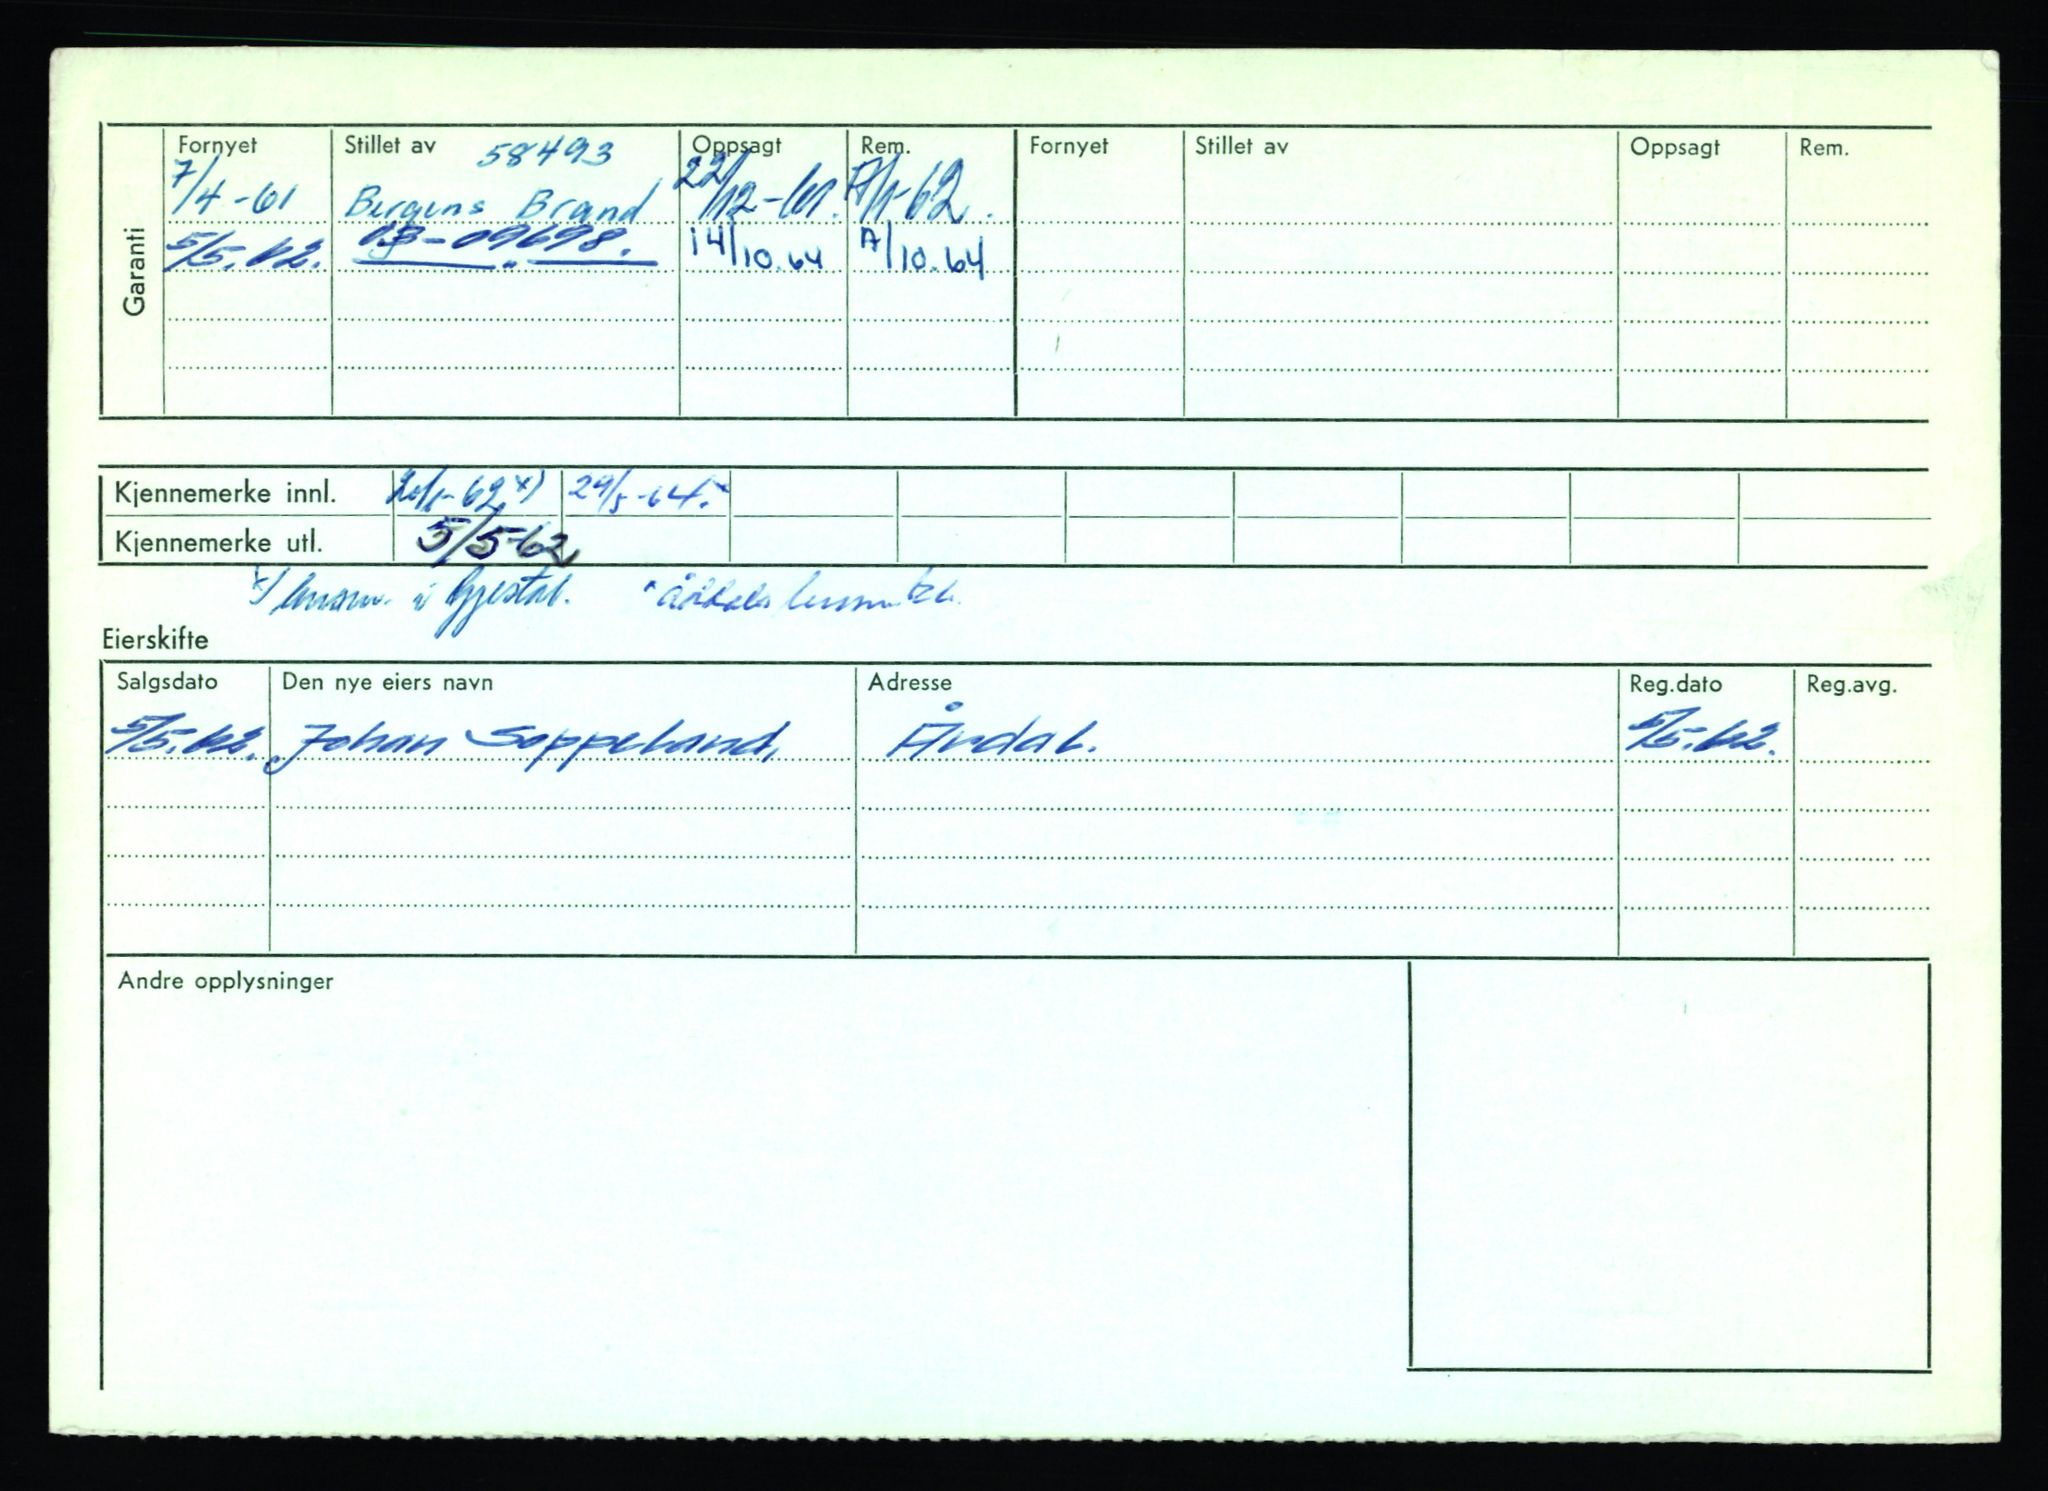 Garanti
Fornyet Stillet av 58493 Oppsagt Rem. Fornyet Stillet av Oppsagt Rem.
7/4-61 Bergens Brand 22/12-61. A/1-62.
5/5.62. 03-09698. 14/10.64 A/10.64
— " —
Kjennemerke innl. 20/1-62 x) 29/5-64. x
Kjennemerke utl. 5/5-62
x) i Gjestal. x
Eierskifte
Salgsdato Den nye eiers navn Adresse Reg.dato Reg.avg.
5/5.62. Johan Soppeland, Årdal. 5/5.62.
Andre opplysninger